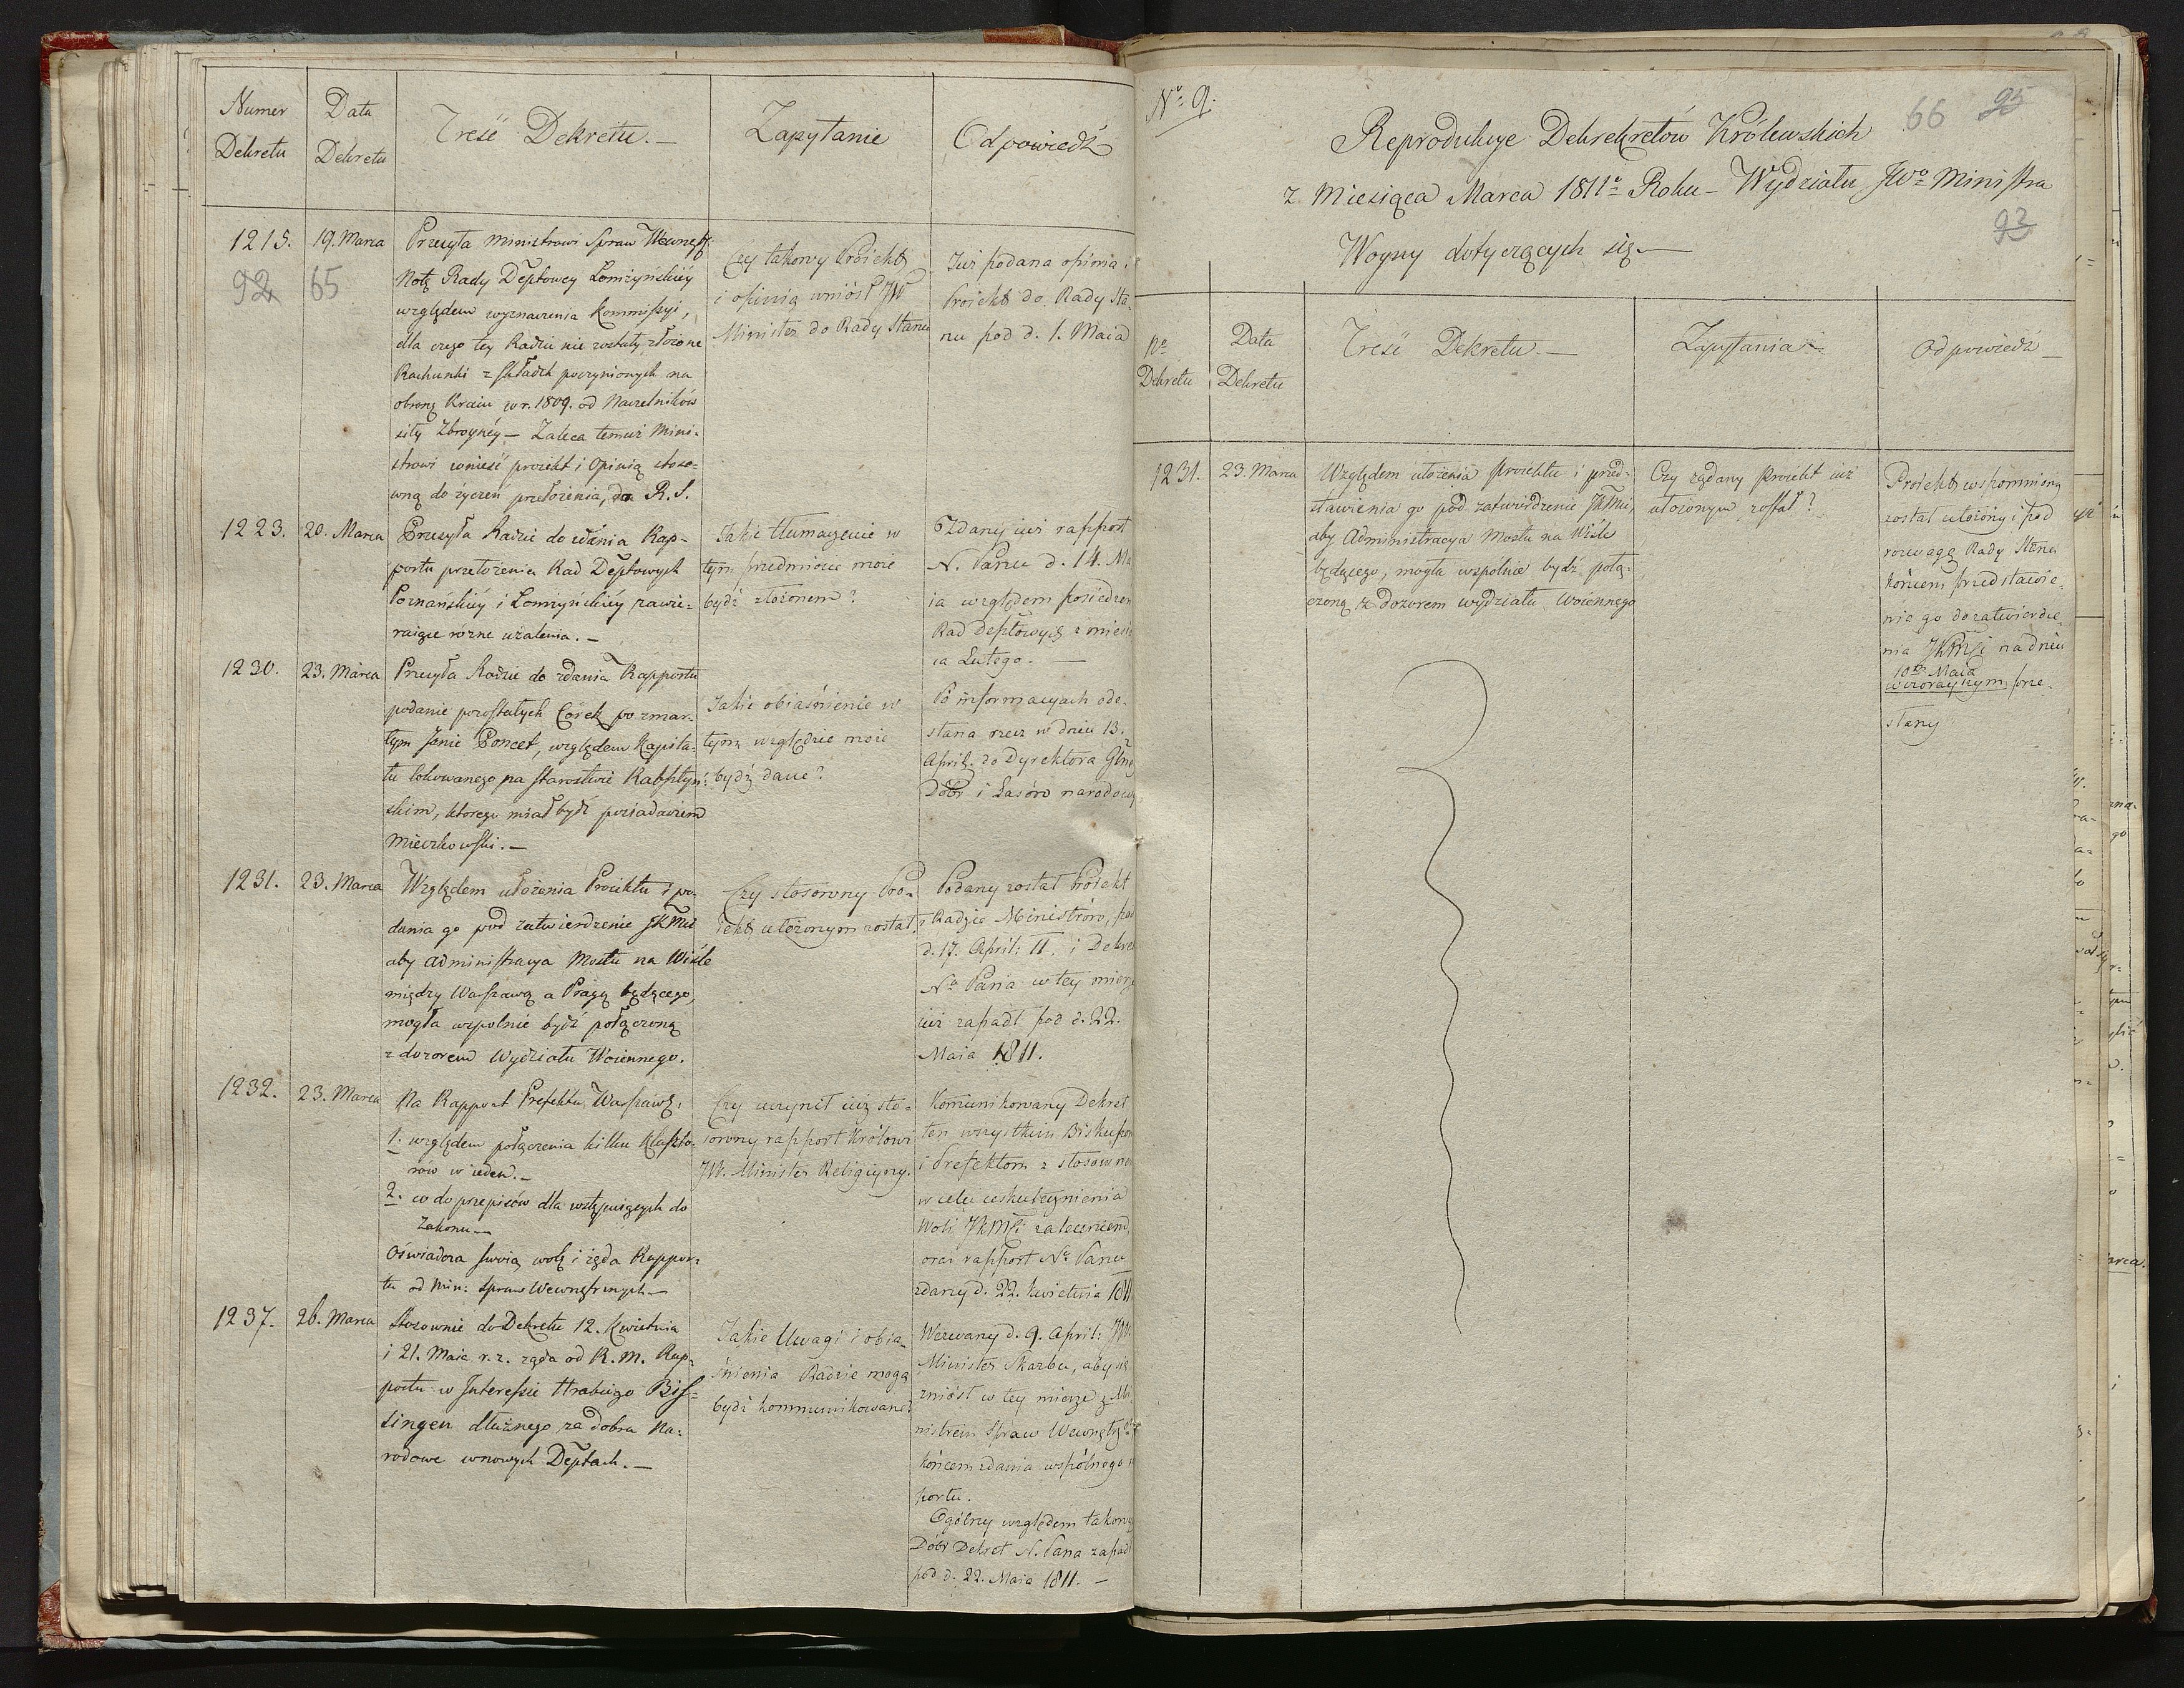 Numer Dekretu
Data Dekretu
Treść Dekretu. —
Zapytanie
Odpowiedź
1215.
92 65
19. Marca
Przesyła Ministrowi Spraw Wewnętz.
Notę Rady Deptowey Łomżyńskiéy
względem wyznaczenia Kommissyi,
dla czego tey Radzie nie zostały złożone
Rachunki z składek poczynionych na
obronę Kraiu w r. 1809. od Naczelników
siły zbroynéy — Zaleca temuż Mini-
strowi wnieść proiekt i Opinią stoso-
wną do życzeń przełożenia, do R. S.
Czy takowy Proiekt
i opinią wniósł JW
Minister do Rady Stanu
Już podana opinia i
Proiekt do Rady Sta-
nu pod d. 1. Maia
1223.
20. Marca
Przesyła Radzie do zdania Rap-
portu przełożenia Rad Deptowych
Poznańskiéy i Łomżyńskiéy zawie-
raiące różne użalenia. —
Jakie tłumaczenie w
tym przedmiocie może
bydź złożonem?
Zdany iuż rapport
N. Panu d. 14. Ma
ia względem posiedzen
Rad deptowych z miesią
ca Lutego. —
1230.
23. Marca
Przesyła Radzie do zdania Rapportu
podanie pozostałych Córek po zmar-
łym Janie Poncet, względem Kapita-
łu lokowanego na Starostwie Rabsztyń-
skim, którego miał bydź posiadaczem
Mieczkowski. —
Jakie obiaśnienie w
tym względzie może
bydź dane?
Po informacyach ode-
słana rzecz w dniu 13.
April. do Dyrektora Głnę
Dóbr i Lasów narodowy
1231.
23. Marca
Względem ułożenia Proiektu i po-
dania go pod zatwierdzenie JKMci
aby administracya Mostu na Wiśle
między Warszawą a Pragą będącego,
mogła wspolnie bydź połączoną
z dozorem Wydziału Woiennego.
Czy stosowny Pro-
iekt ułożonym został?
Podany został Proiekt
Radzie Ministrów, pod
d. 17. April: 11. i Dekret
No Pana w tey mierze
iuż zapadł pod d. 22.
Maia 1811.
1232.
23. Marca
Na Rapport Prefekta Warszaws:
1. względem połączenia kilku Klaszto-
rów w ieden. —
2. co do przepisów dla wstępuiących do
Zakonu —
Oświadcza swoią wolę i żąda Rappor-
tu od Min: Spraw Wewnętrznych —
Czy uczynił iuż sto-
sowny rapport Królowi
JW. Minister Religiyny.
Komunikowany Dekret
ten wszystkim Biskupom
i Prefektom z stosowne
w celu uskutecznienia
Woli JKMci zaleceniem
oraz rapport No Panu
zdany d. 22. Kwietnia 1811
1237.
26. Marca
Stosownie do Dekretu 12. Kwietnia
i 21. Maia r. z. żąda od R. M. Rap-
portu w Interessie Hrabiego Bis-
singen dłużnego za dobra Na-
rodowe w nowych Deptach. —
Jakie Uwagi i obia-
śnienia Radzie mogą
bydź kommunikowane?
Wezwany d. 9. April: JW.
Minister Skarbu, aby się
zniósł w tey mierze z Mi
nistrem Spraw Wewnętrz
końcem zdania wspólnego
portu.
Ogólny względem takowy
Dóbr Dekret N. Pana zapadł
pod d. 22. Maia 1811. —
No 9.
66 95
Reprodukcye Dekrekretów Królewskich
z Miesiąca Marca 1811o Roku — Wydziału JWo Ministra
93
Woyny dotyczących się —
No Dekretu
Data Dekretu
Treść Dekretu. —
Zapytania
Odpowiedź —
1231.
23. Marca
Względem ułożenia proiektu i przed-
stawienia go pod zatwierdzenie JKMci,
aby Administracya Mostu na Wiśle
będącego, mogła wspólnie bydź połą-
czoną z dozorem wydziału Woiennego
Czy żądany proiekt iuż
ułożonym został?
Proiekt wspomniony
został ułożony i pod
rozwagę Rady Stanu
końcem przedstawie-
nia go do zatwierdze-
nia JKMci na dniu
10tm Maia
wczorayszym prze-
słany